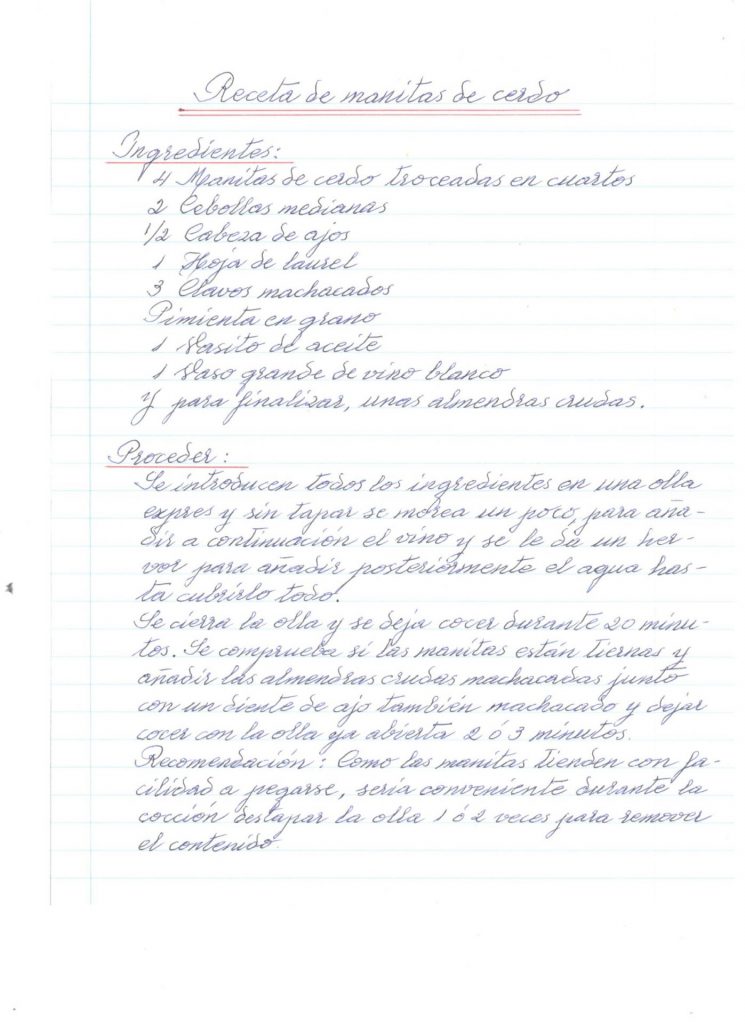 Receta de manitas de cerdo
Ingredientes:
4 Manitas de cerdo troceadas en cuartos
2 Cebollas medianas
1/2 Cabeza de ajos
1 Hoja de laurel
3 Clavos machacados
Pimienta en grano
1 Vasito de aceite
1 Vaso grande de vino blanco
Y para finalizar, unas almendras crudas.
Proceder:
Se introducen todos los ingredientes en una olla
expres y sin tapar se morea un poco, para aña-
dir a continuación el vino y se le da un her-
vor para añadir posteriormente el agua has-
ta cubrirlo todo.
Se cierra la olla y se deja cocer durante 20 minu-
tos. Se comprueba si las manitas están tiernas y
añadir las almendras crudas machacadas junto
con un diente de ajo también machacado y dejar
cocer con la olla ya abierta 2 ó 3 minutos.
Recomendación: Como las manitas tienden con fa-
cilidad a pegarse, sería conveniente durante la
cocción destapar la olla 1 ó 2 veces para remover
el contenido.